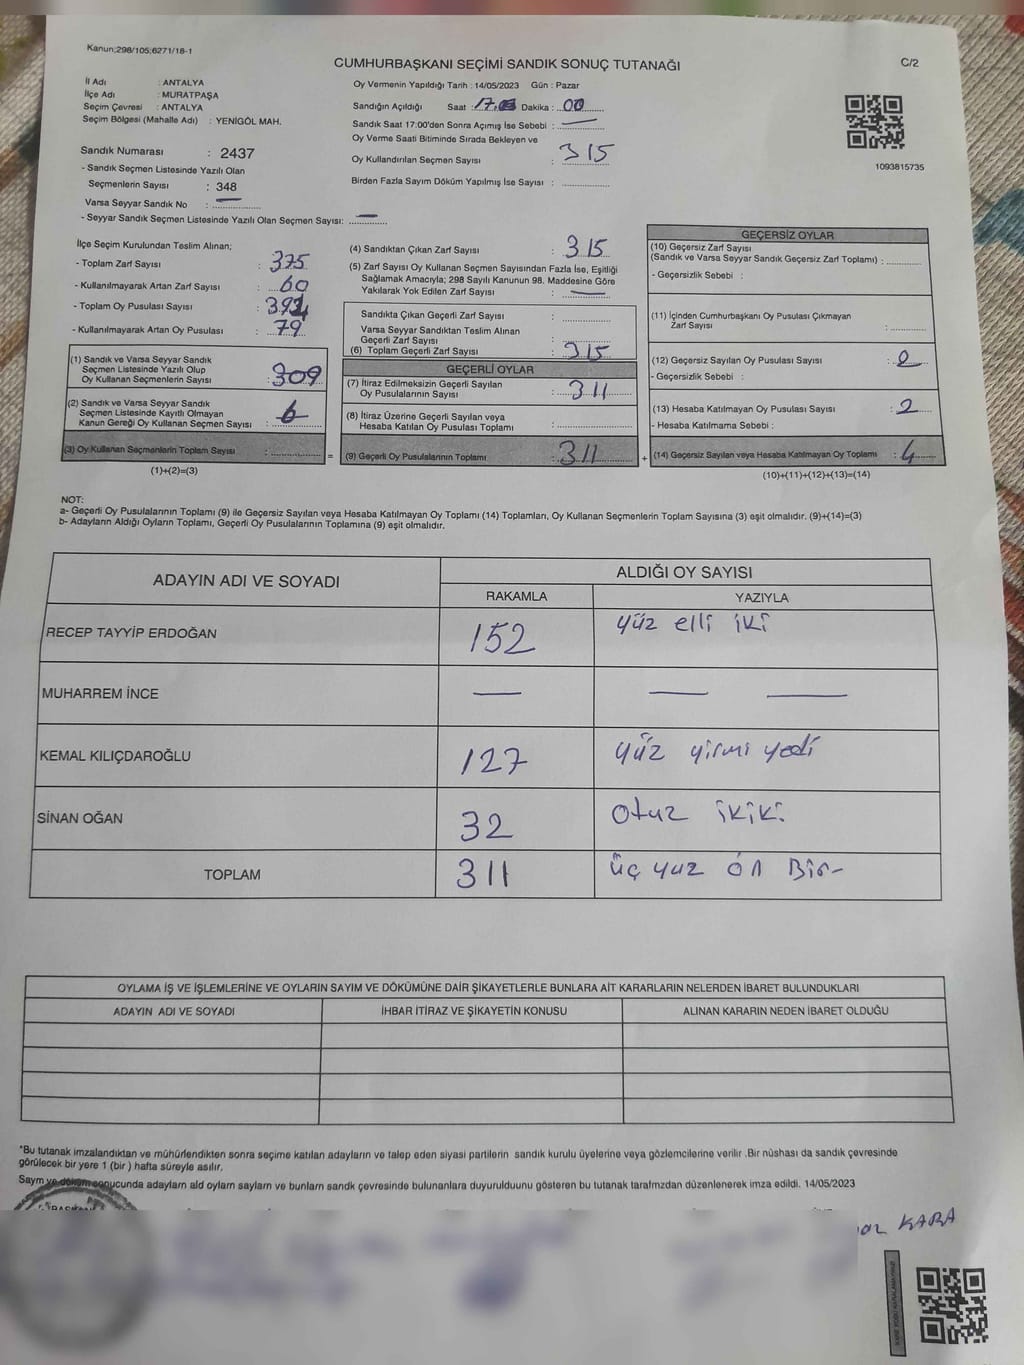 Kanun;298/105;6271/18-1
CUMHURBAŞKANI SEÇİMİ SANDIK SONUÇ TUTANAĞI
C/2
İl Adı : ANTALYA
İlçe Adı : MURATPAŞA
Seçim Çevresi : ANTALYA
Seçim Bölgesi (Mahalle Adı) : YENİGÖL MAH.
Sandık Numarası : 2437
- Sandık Seçmen Listesinde Yazılı Olan
Seçmenlerin Sayısı : 348
Varsa Seyyar Sandık No : —
- Seyyar Sandık Seçmen Listesinde Yazılı Olan Seçmen Sayısı: —
Oy Vermenin Yapıldığı Tarih : 14/05/2023 Gün : Pazar
Sandığın Açıldığı Saat : 17. Dakika : 00
Sandık Saat 17:00'den Sonra Açımış İse Sebebi : —
Oy Verme Saati Bitiminde Sırada Bekleyen ve
Oy Kullandırılan Seçmen Sayısı : 315
Birden Fazla Sayım Döküm Yapılmış İse Sayısı :
1093815735
İlçe Seçim Kurulundan Teslim Alınan;
- Toplam Zarf Sayısı : 375
- Kullanılmayarak Artan Zarf Sayısı : 60
- Toplam Oy Pusulası Sayısı :
- Kullanılmayarak Artan Oy Pusulası : 79
(1) Sandık ve Varsa Seyyar Sandık
Seçmen Listesinde Yazılı Olup
Oy Kullanan Seçmenlerin Sayısı : 309
(2) Sandık ve Varsa Seyyar Sandık
Seçmen Listesinde Kayıtlı Olmayan
Kanun Gereği Oy Kullanan Seçmen Sayısı : 6
(3) Oy Kullanan Seçmenlerin Toplam Sayısı : =
(1)+(2)=(3)
(4) Sandıktan Çıkan Zarf Sayısı : 315
(5) Zarf Sayısı Oy Kullanan Seçmen Sayısından Fazla İse, Eşitliği
Sağlamak Amacıyla; 298 Sayılı Kanunun 98. Maddesine Göre
Yakılarak Yok Edilen Zarf Sayısı : —
Sandıkta Çıkan Geçerli Zarf Sayısı :
Varsa Seyyar Sandıktan Teslim Alınan
Geçerli Zarf Sayısı :
(6) Toplam Geçerli Zarf Sayısı : 315
GEÇERLİ OYLAR
(7) İtiraz Edilmeksizin Geçerli Sayılan
Oy Pusulalarının Sayısı : 311
(8) İtiraz Üzerine Geçerli Sayılan veya
Hesaba Katılan Oy Pusulası Toplamı :
(9) Geçerli Oy Pusulalarının Toplamı : 311 +
GEÇERSİZ OYLAR
(10) Geçersiz Zarf Sayısı
(Sandık ve Varsa Seyyar Sandık Geçersiz Zarf Toplamı) :
- Geçersizlik Sebebi :
(11) İçinden Cumhurbaşkanı Oy Pusulası Çıkmayan
Zarf Sayısı :
(12) Geçersiz Sayılan Oy Pusulası Sayısı : 2
- Geçersizlik Sebebi :
(13) Hesaba Katılmayan Oy Pusulası Sayısı : 2
- Hesaba Katılmama Sebebi :
(14) Geçersiz Sayılan veya Hesaba Katılmayan Oy Toplamı : 4
(10)+(11)+(12)+(13)=(14)
NOT:
a- Geçerli Oy Pusulalarının Toplamı (9) ile Geçersiz Sayılan veya Hesaba Katılmayan Oy Toplamı (14) Toplamları, Oy Kullanan Seçmenlerin Toplam Sayısına (3) eşit olmalıdır. (9)+(14)=(3)
b- Adayların Aldığı Oyların Toplamı, Geçerli Oy Pusulalarının Toplamına (9) eşit olmalıdır.
ADAYIN ADI VE SOYADI
ALDIĞI OY SAYISI
RAKAMLA YAZIYLA
RECEP TAYYİP ERDOĞAN 152 yüz elli iki
MUHARREM İNCE — — —
KEMAL KILIÇDAROĞLU 127 yüz yirmi yedi
SİNAN OĞAN 32 otuz ikiki.
TOPLAM 311 üç yuz ón Bir-
OYLAMA İŞ VE İŞLEMLERİNE VE OYLARIN SAYIM VE DÖKÜMÜNE DAİR ŞİKAYETLERLE BUNLARA AİT KARARLARIN NELERDEN İBARET BULUNDUKLARI
ADAYIN ADI VE SOYADI İHBAR İTİRAZ VE ŞİKAYETİN KONUSU ALINAN KARARIN NEDEN İBARET OLDUĞU
*Bu tutanak imzalandıktan ve mühürlendikten sonra seçime katılan adayların ve talep eden siyasi partilerin sandık kurulu üyelerine veya gözlemcilerine verilir .Bir nüshası da sandık çevresinde
görülecek bir yere 1 (bir ) hafta süreyle asılır.
Saym ve döküm sonucunda adaylarn ald oylarn saylarn ve bunlarn sandk çevresinde bulunanlara duyurulduunu gösteren bu tutanak tarafmzdan düzenlenerek imza edildi. 14/05/2023
KARA